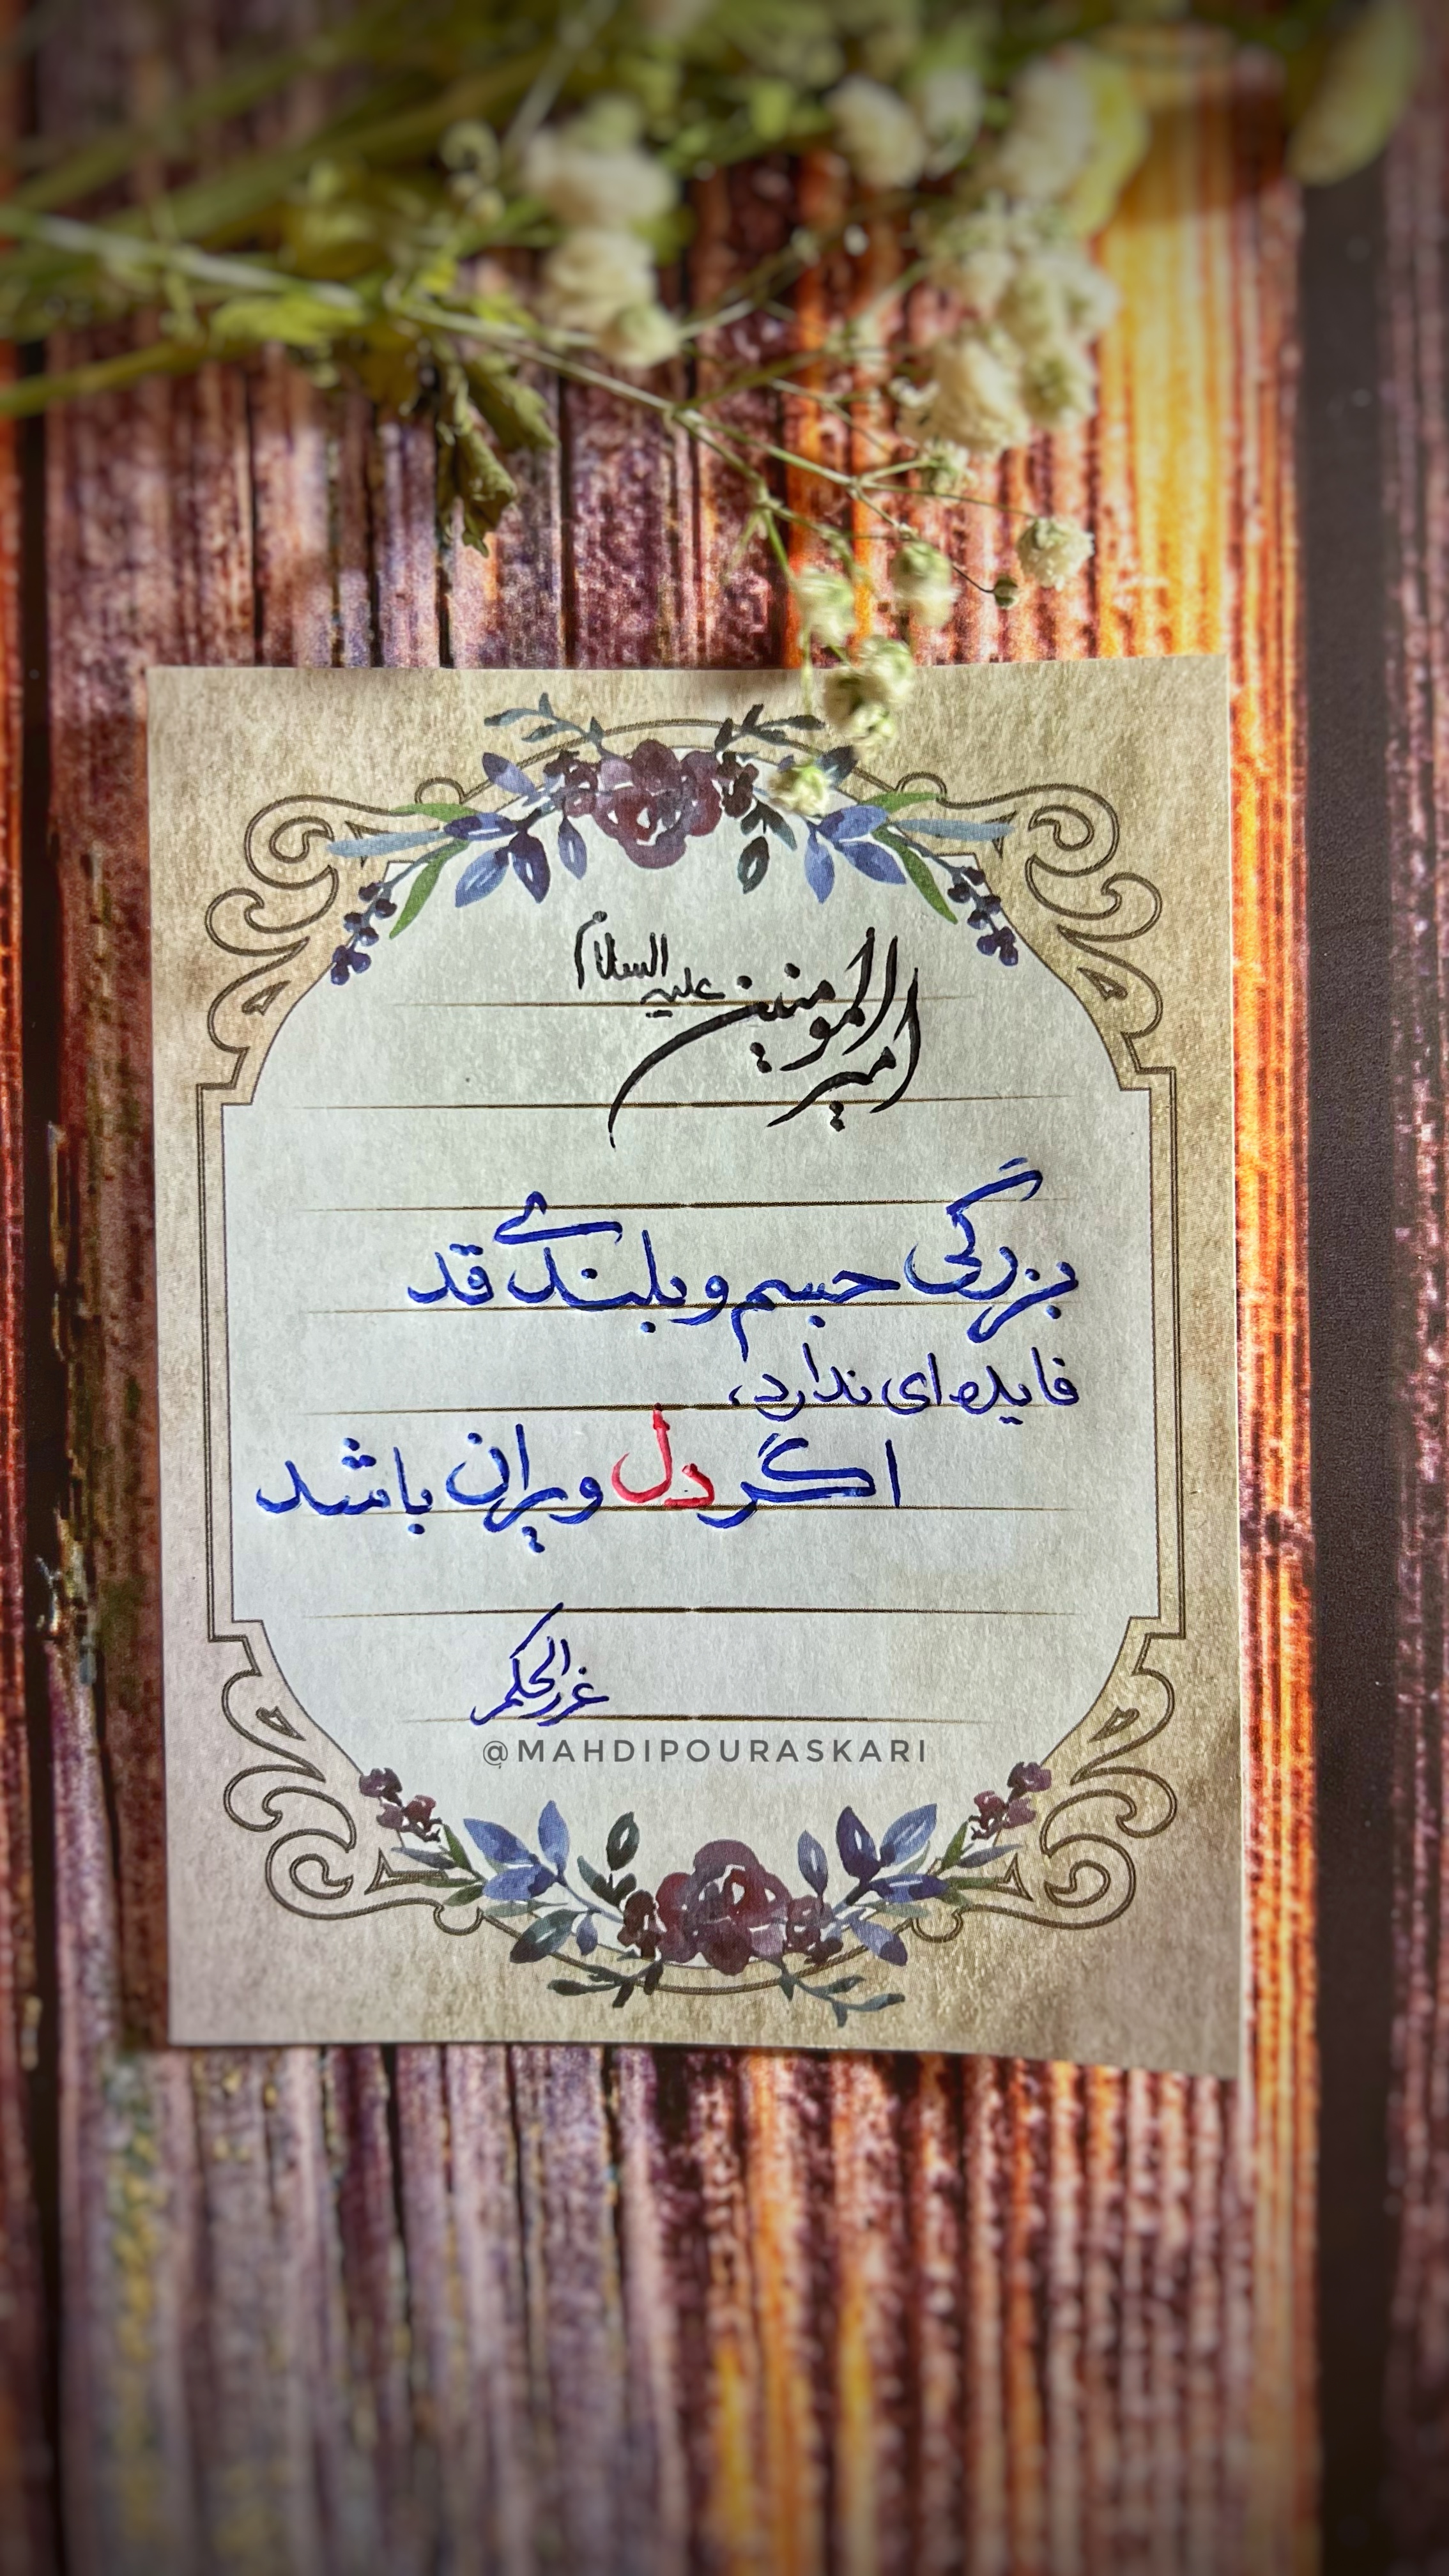 امیرالمومنین علیه السلام
بزرگی جسم و بلندی قد
فایده ای ندارد،
اگر دل ویران باشد
غررالحکم
@MAHDIPOURASKARI